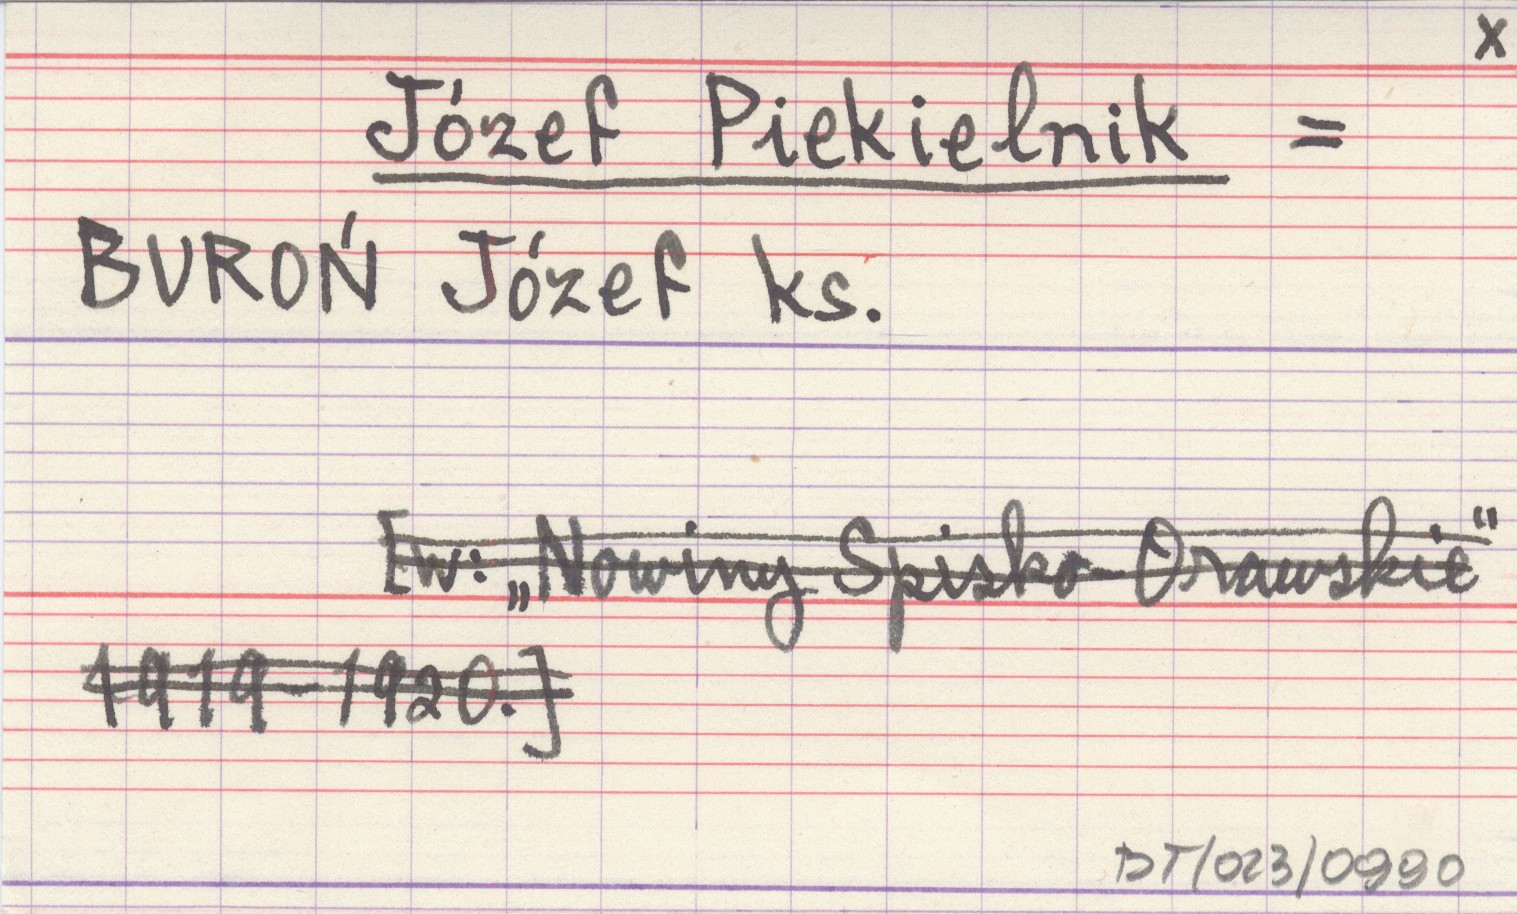 x
Józef Piekielnik =
BUROŃ Józef ks.
[w: „Nowiny Spisko-Orawskie"
1919-1920.]
DT/023/0990